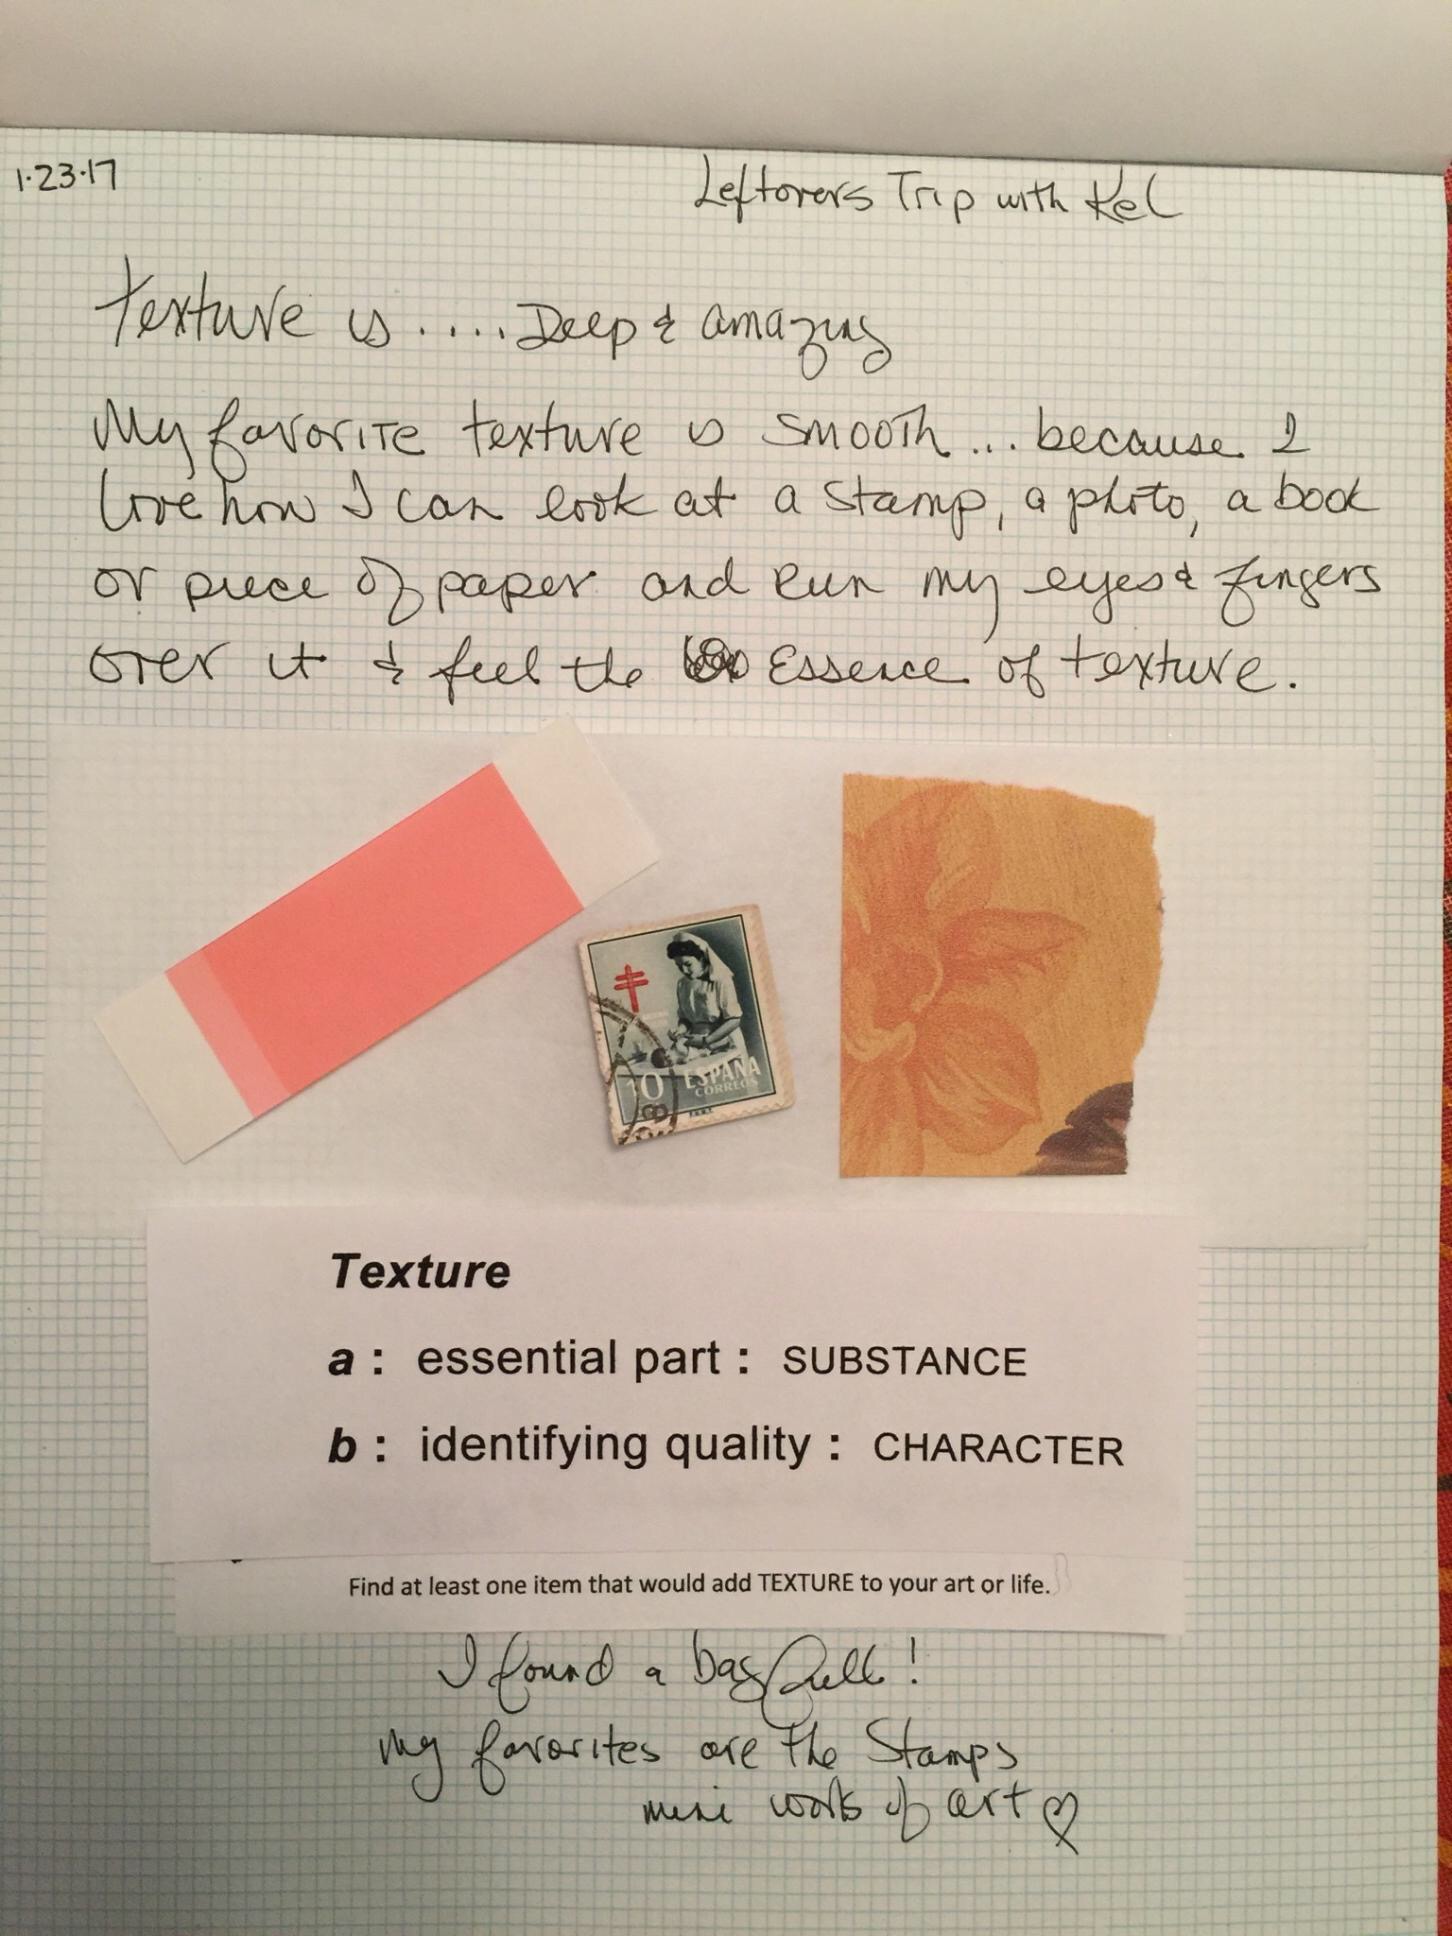 1·23·17
Leftovers Trip with Kel
Texture is .... Deep & amazing
My favorite texture is smooth ... because I
love how I can look at a stamp, a photo, a book
or piece of paper and run my eyes & fingers
over it & feel the Essence of texture.
10 ESPAÑA
CORREOS
Texture
a : essential part : SUBSTANCE
b : identifying quality : CHARACTER
Find at least one item that would add TEXTURE to your art or life.
I found a bag full!
My favorites are the Stamps
mini works of art ♡